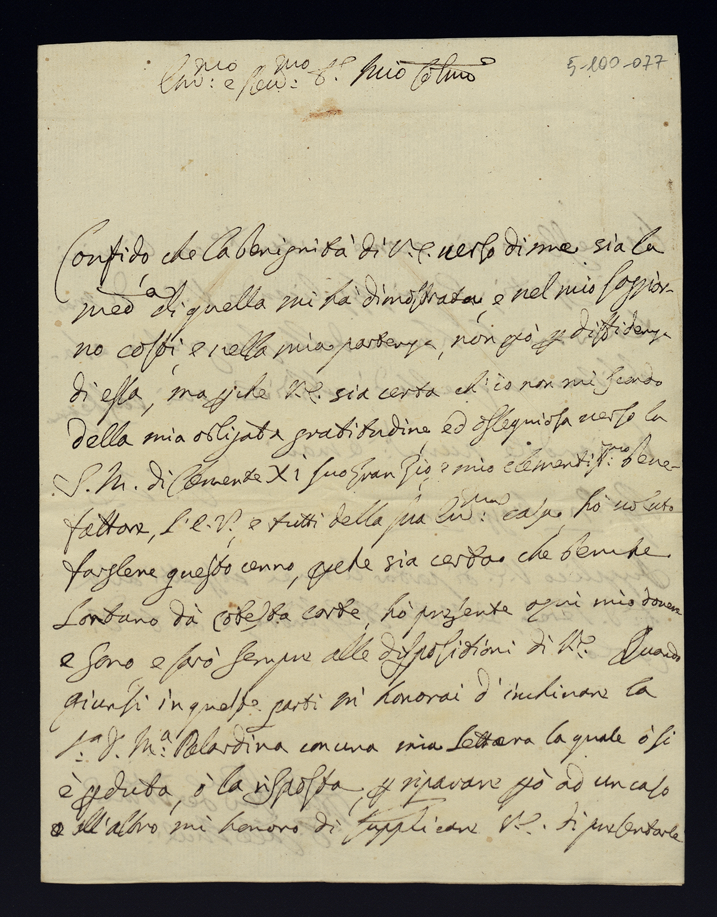 Em:mo e Rev:mo S.r mio Col:mo
5-100-077
Confido che la benignità di V.E. verso di me sia la
med:a di quella mi hà dimostrata, e nel mio soggior-
no costì e nella mia partenza, non già p diffidenza
di essa, ma pche V.E. sia certa ch'io non mi scordo
della mia obligata gratitudine, ed ossequiosa verso la
S. M. di Clemente XI suo gran Zio, e mio clementiss:mo Bene-
fattore, l'E.V., e tutti della sua Ecc:ma casa, hò voluto
farglene questo cenno, pche sia certa che benche
Lontano dà cotesta corte, hò presente ogni mio dovere
e sono e sarò sempre alle disposizioni di V.E. Quando
giunsi in queste parti m'honorai d'inchinare la
S:a D. M:a Belardina con una mia lettera la quale ò si
è pduta, ò la risposta, p riparare pò ad un caso
e all'altro mi honoro di supplicare V.E. di presentarle